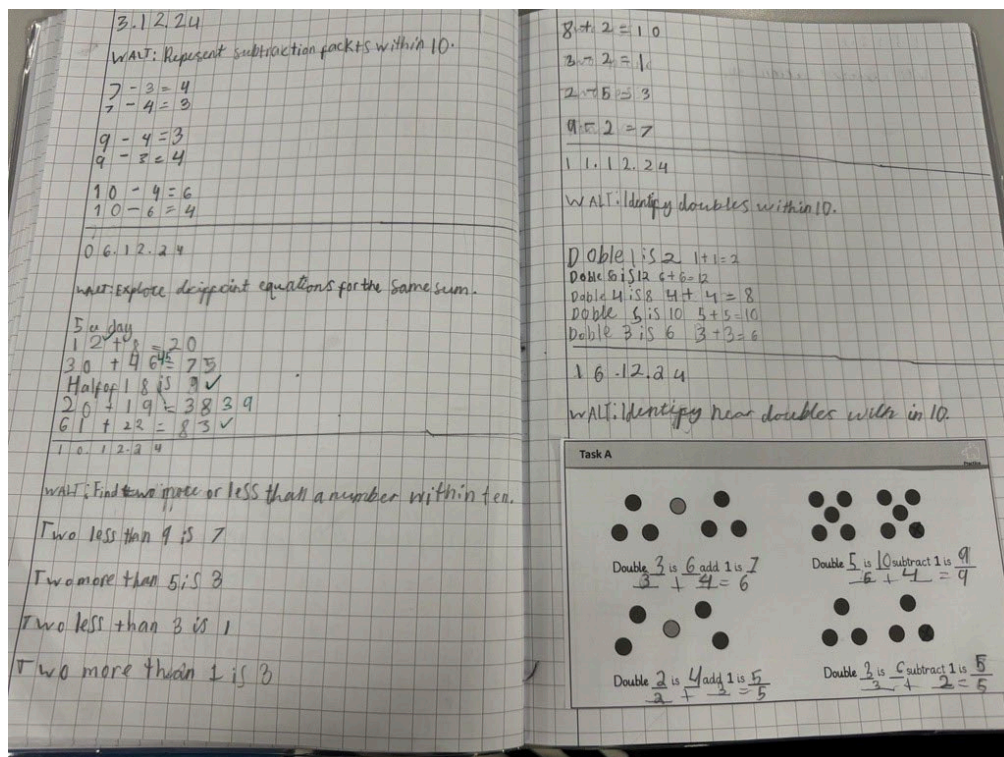 3.12.24
WALT: Repesent subtraction fackts within 10.
7 - 3 = 4
7 - 4 = 3
9 - 4 = 3
9 - 3 = 4
10 - 4 = 6
10 - 6 = 4
06.12.24
equations for the same sum.
5 a day
12 + 8 = 20
30 + 46 45 = 75
Half of 18 is 9 ✓
20 + 19 = 38 39
61 + 22 = 83 ✓
10.12.24
WALT: Find two more or less than a number within ten.
Two less than 9 is 7
Two more than 5 is 3
Two less than 3 is 1
Two more than 1 is 3
2 = 10
2 = 1
9 - 2 = 7
11.12.24
WALT: Identify doubles within 10.
Doble 1 is 2 1+1=2
Doble 6 is 12 6+6=12
Doble 4 is 8 4+4=8
Doble 5 is 10 5+5=10
Doble 3 is 6 3+3=6
16.12.24
WALT: Identify near doubles with in 10.
Task A
Double 3 is 6 add 1 is 7
3 + 4 = 6
Double 5 is 10 subtract 1 is 9
5 + 4 = 9
Double 2 is 4 add 1 is 5
2 + 3 = 5
Double 3 is 6 subtract 1 is 5
3 + 2 = 5